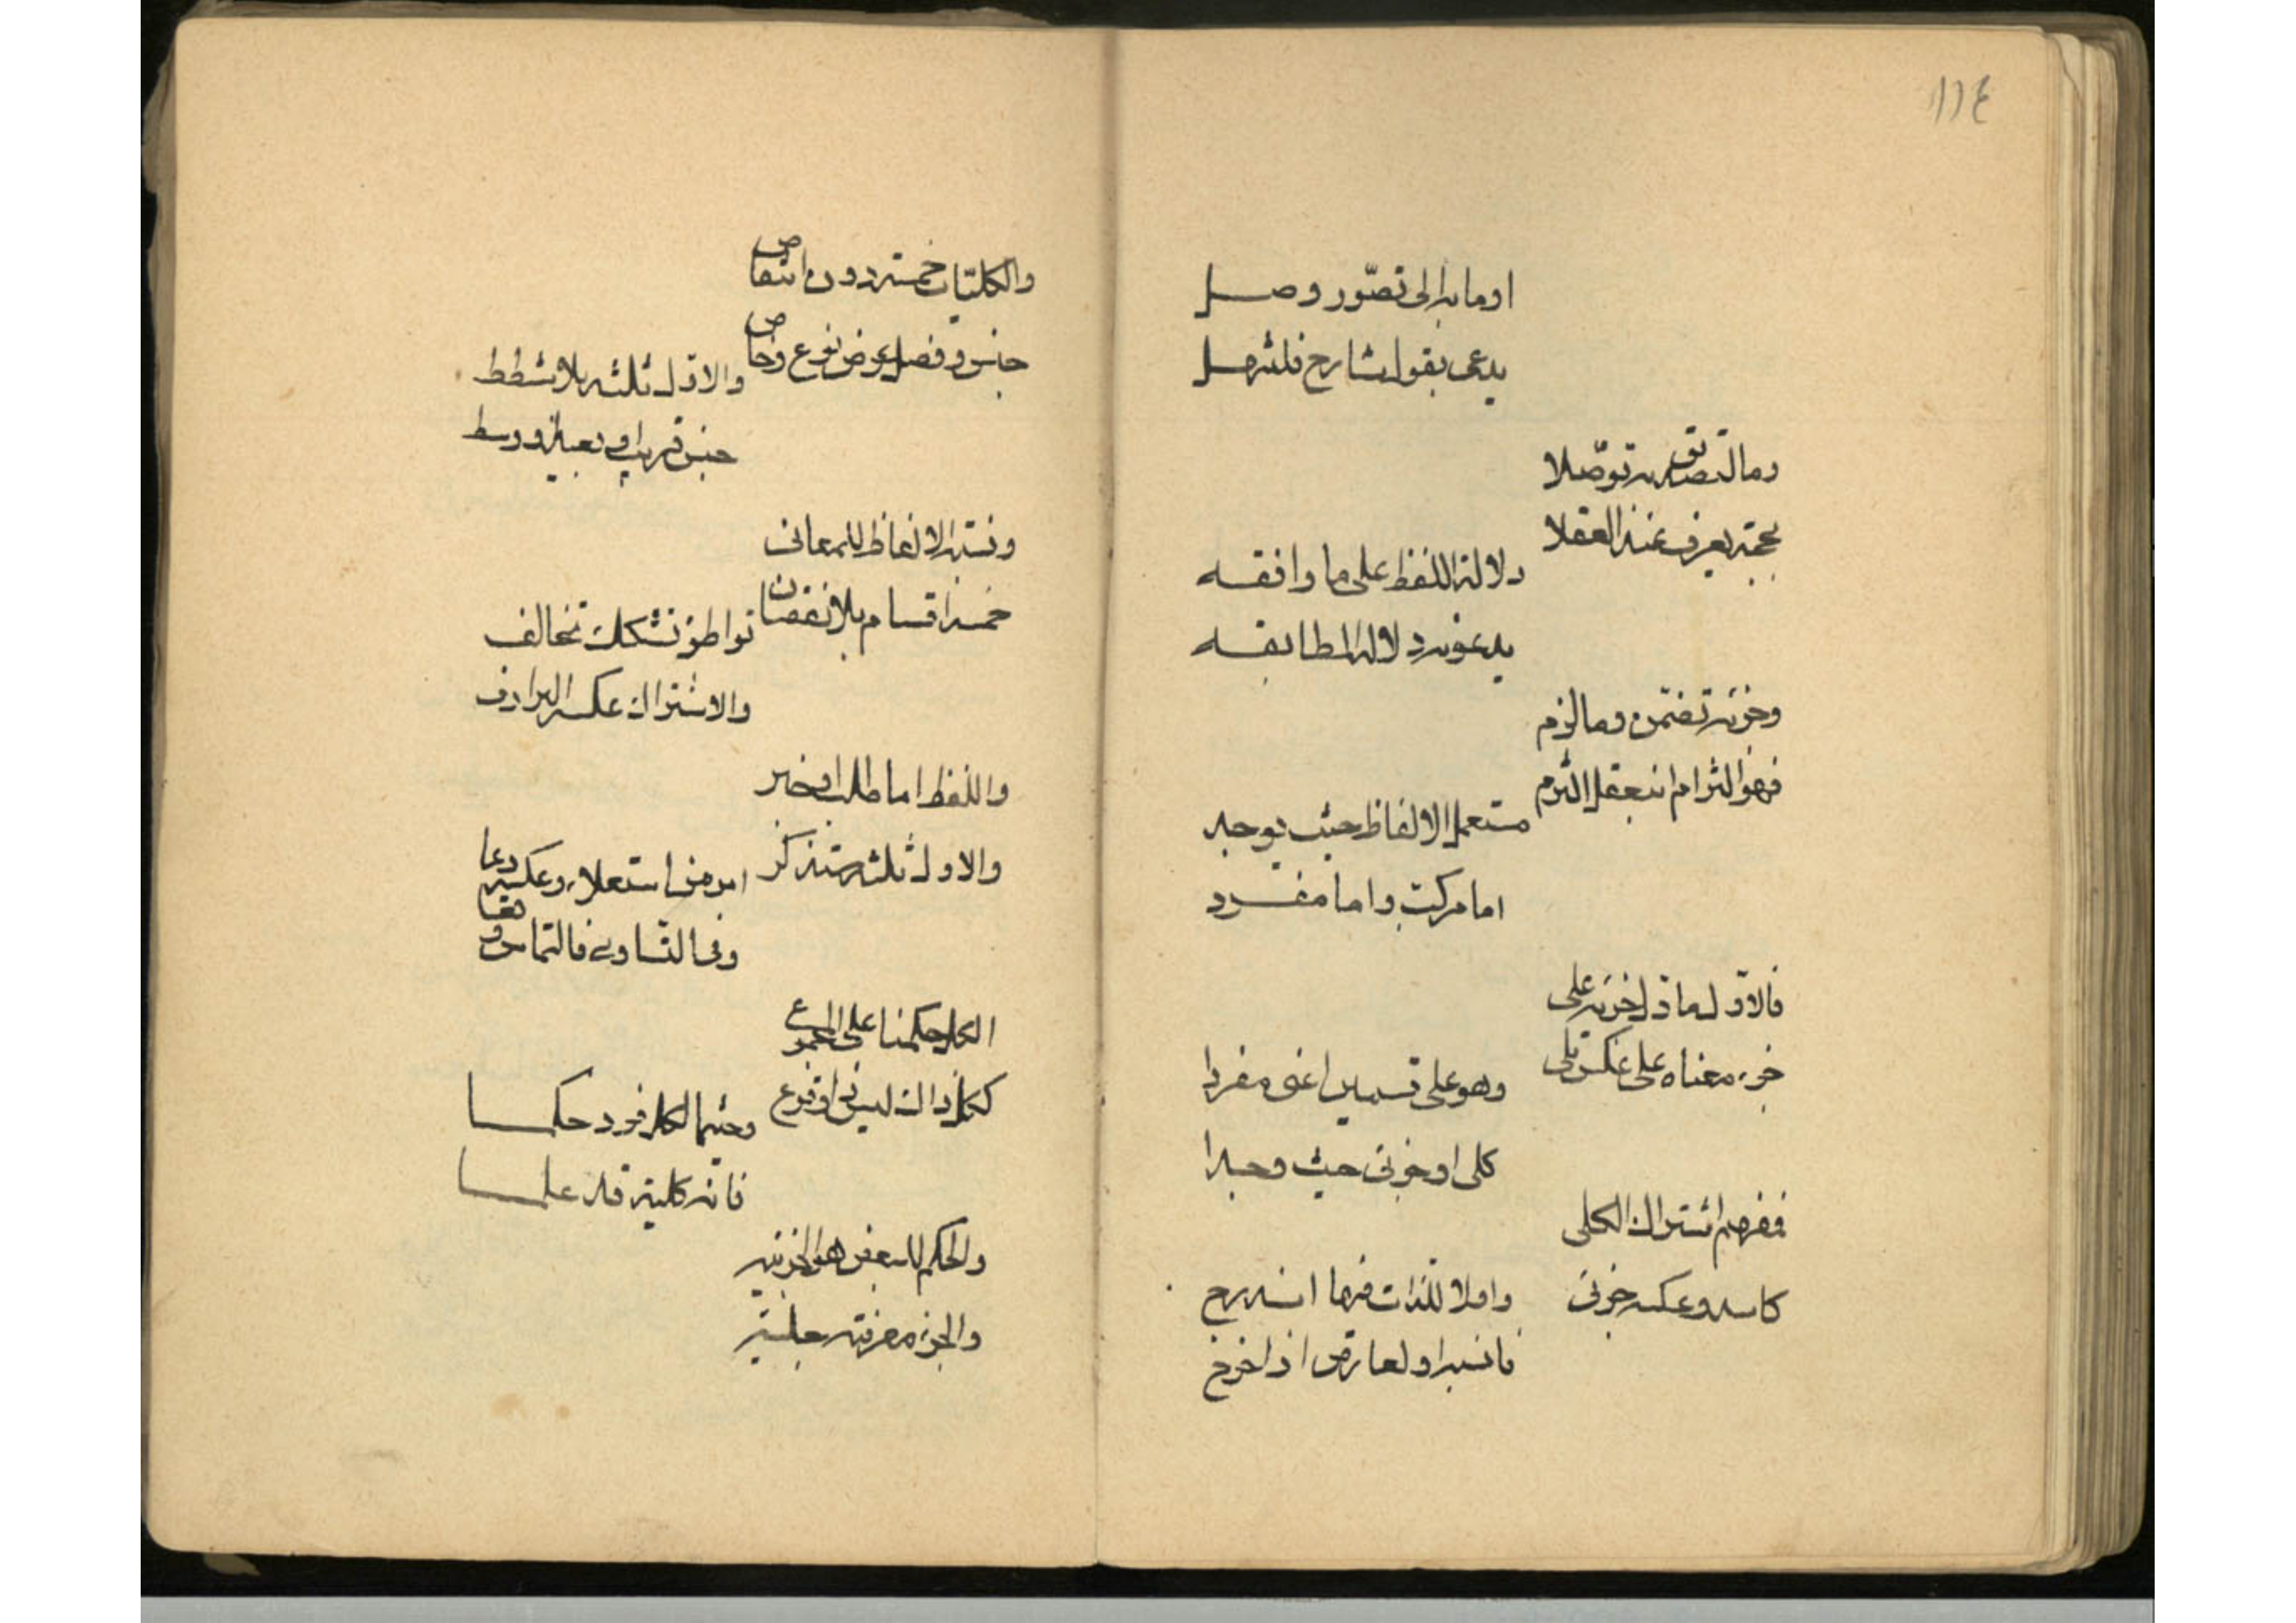 ١١٤
وما به إلى تصوّر وصل
يدعى بقول شارح فلتبتهل
وما لتصديق به توصّلا
بحجة يعرف عند العقلا
دلالة اللفظ على ما وافقه
يدعونه دلالة المطابقه
وجزئه تضمّن وما لزم
فهو التزام ان بعقل التزم
مستعمل الالفاظ حيث يوجد
اما مركب واما مفرد
فالاوّل ما دل جزئه على
جزء معناه على عكس تلى
وهو على قسمين اعنى مفردا
كلى او جزئى حيث وجدا
ففهم اشتراك الكلى
كاسد وعكسه جزئى
واولا للذات فيها اندرج
فانسبه او لعارض اذا خرج
والكليّات خمسة دون انتقاص
جنس وفصل عرض نوع وخاص
والاوّل ثلثه بلا شطط
جنس قريب او بعيد او وسط
ونسبة الالفاظ للمعانى
خمسة اقسام بلا نقصان
تواطؤ تشكك تخالف
والاشتراك عكسه الترادف
واللفظ اما طلب او خبر
والاول ثلثة ستذكر
امر من استعلاء وعكسه دعا
وفى التساوى فالتماس وقعا
الكل حكمنا على المجموع
ككل ذاك ليس ذا وقوع
وحيثما لكل فرد حكما
فانه كلية قد علما
والحكم للبعض هو الجزئيه
والجزء معرفته جليه